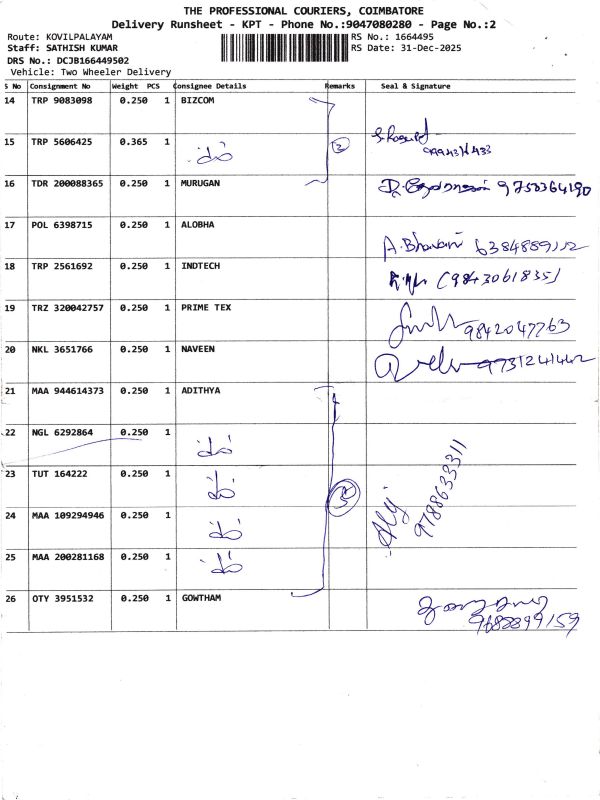 THE PROFESSIONAL COURIERS, COIMBATORE
Delivery Runsheet - KPT - Phone No.:9047080280 - Page No.:2
Route: KOVILPALAYAM
Staff: SATHISH KUMAR
DRS No.: DCJB166449502
Vehicle: Two Wheeler Delivery
RS No.: 1664495
RS Date: 31-Dec-2025
S No Consignment No Weight PCS Consignee Details Remarks Seal & Signature
14 TRP 9083098 0.250 1 BIZCOM
15 TRP 5606425 0.365 1
16 TDR 200088365 0.250 1 MURUGAN 9750364190
17 POL 6398715 0.250 1 ALOBHA A.Bhavani 6384889112
18 TRP 2561692 0.250 1 INDTECH (9843061835)
19 TRZ 320042757 0.250 1 PRIME TEX 9842047763
20 NKL 3651766 0.250 1 NAVEEN 9731241442
21 MAA 944614373 0.250 1 ADITHYA
22 NGL 6292864 0.250 1
23 TUT 164222 0.250 1 9788633311
24 MAA 109294946 0.250 1
25 MAA 200281168 0.250 1
26 OTY 3951532 0.250 1 GOWTHAM 9688899159